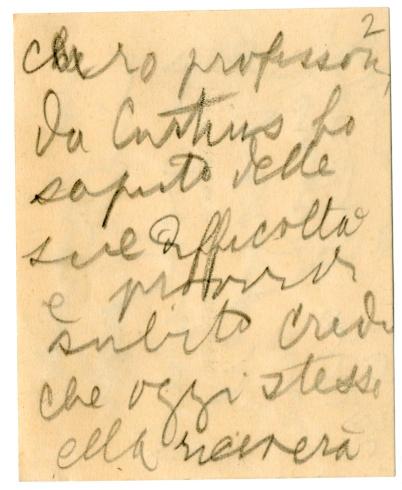 2
Caro professore,
da Curtius ho
saputo delle
sue difficoltà
e provvidi
subito credo
che oggi stesso
ella riceverà